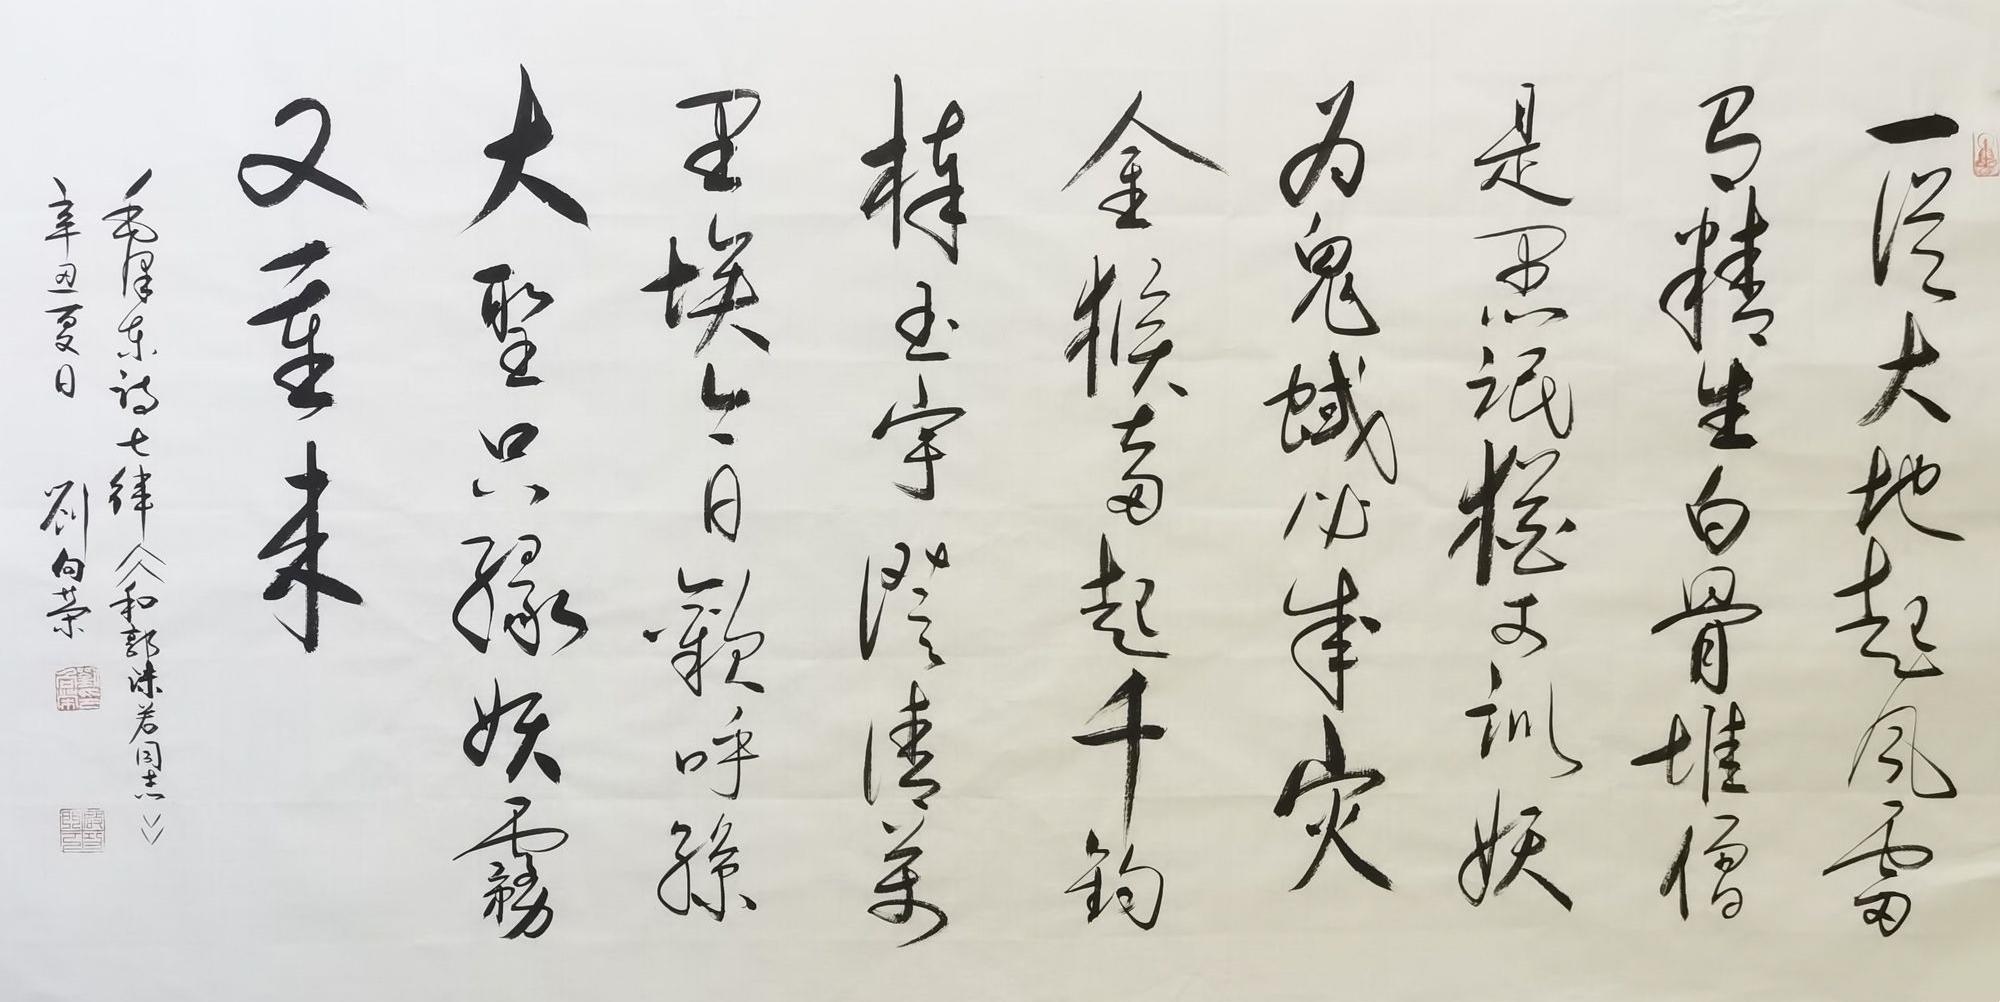 一從大地起風雷
便有精生白骨堆僧
是愚氓猶可訓妖
为鬼蜮必成灾
金猴奮起千鈞
棒玉宇澄清萬
里埃今日歡呼孫
大聖只緣妖霧
又重来
毛澤东詩七律《和郭沫若同志》
辛丑夏日 劉向荣